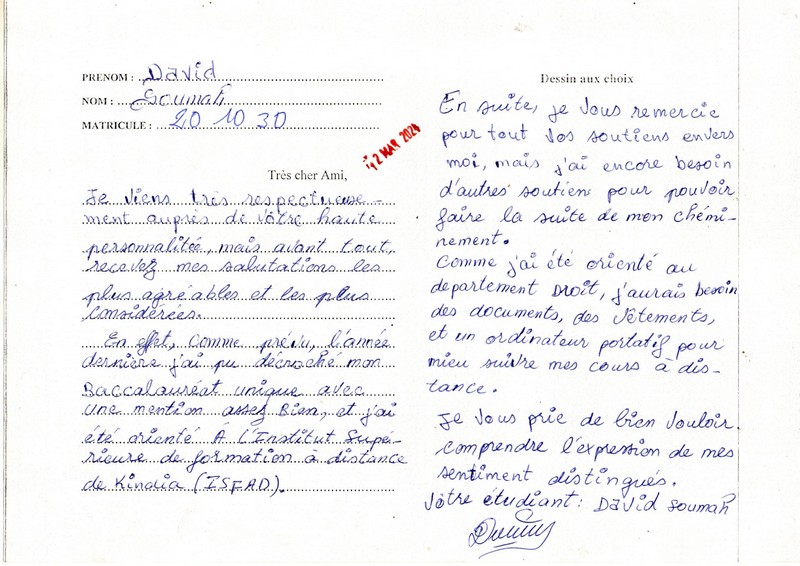 PRENOM : David
NOM : Soumah
MATRICULE : 20 10 30
12 MAR 2024
Très cher Ami,
Je viens très respectueuse-
ment auprès de vôtre haute
personnalitée, mais avant tout,
recevez mes salutations les
plus agréables et les plus
considérées.
En effet, comme prévu, l'année
dernière j'ai pu décroché mon
Baccalauréat unique avec
une mention assez Bien, et j'ai
été orienté À L'Institut Supé-
rieure de formation à distance
de Kindia (ISFAD).
Dessin aux choix
En suite, je vous remercie
pour tout vos soutiens envers
moi, mais j'ai encore besoin
d'autres soutien pour pouvoir
faire la suite de mon chémi-
nement.
Comme j'ai été orienté au
departement Droit, j'aurais besoin
des documents, des vêtements,
et un ordinateur portatif pour
mieu suivre mes cours à dis-
tance.
Je vous prie de bien vouloir
comprendre l'expression de mes
sentiment distingués.
Vôtre étudiant : David Soumah